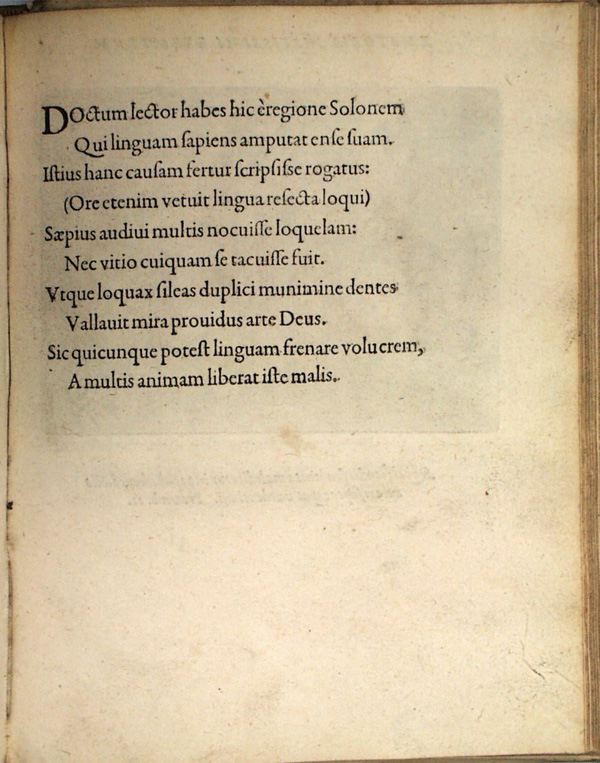 DOctum lector habes hic èregione Solonem
Qui linguam ſapiens amputat enſe ſuam.
Iſtius hanc cauſam fertur ſcripſiſſe rogatus:
(Ore etenim vetuit lingua reſecta loqui)
Sæpius audiui multis nocuiſſe loquelam:
Nec vitio cuiquam ſe tacuiſſe fuit.
Vtque loquax ſileas duplici munimine dentes
Vallauit mira prouidus arte Deus.
Sic quicunque poteſt linguam frenare volucrem,
A multis animam liberat iſte malis.